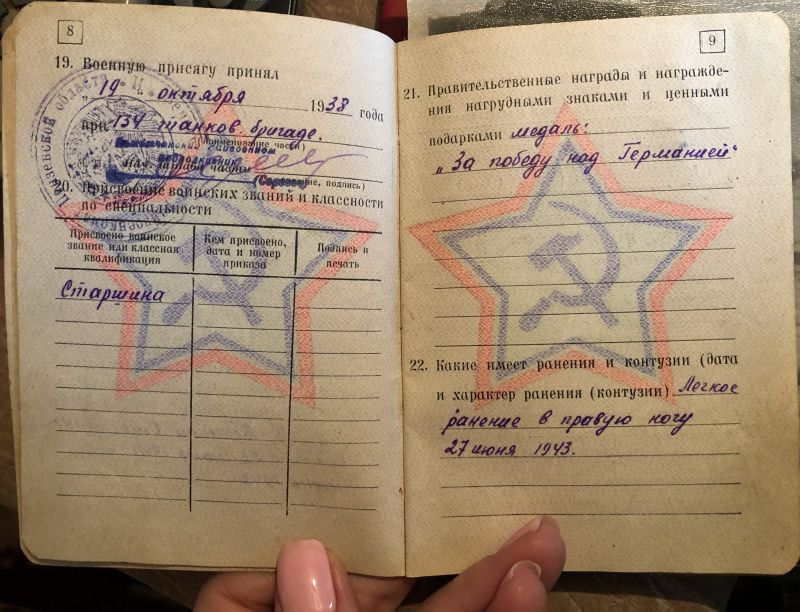 8
19. Военную присягу принял
„19“ октября 1938 года
при 134 танков. бригаде.
(наименование части)
нач. штаба части
(Сергеев)
ние, подпись)
20. Присвоение воинских званий и классности
по специальности
Присвоено воинское
звание или классная
квалификация
Кем присвоено,
дата и номер
приказа
Подпись и
печать
Старшина
9
21. Правительственные награды и награжде-
ния нагрудными знаками и ценными
подарками медаль:
„За победу над Германией“
22. Какие имеет ранения и контузии (дата
и характер ранения (контузии) Легкое
ранение в правую ногу
27 июня 1943.